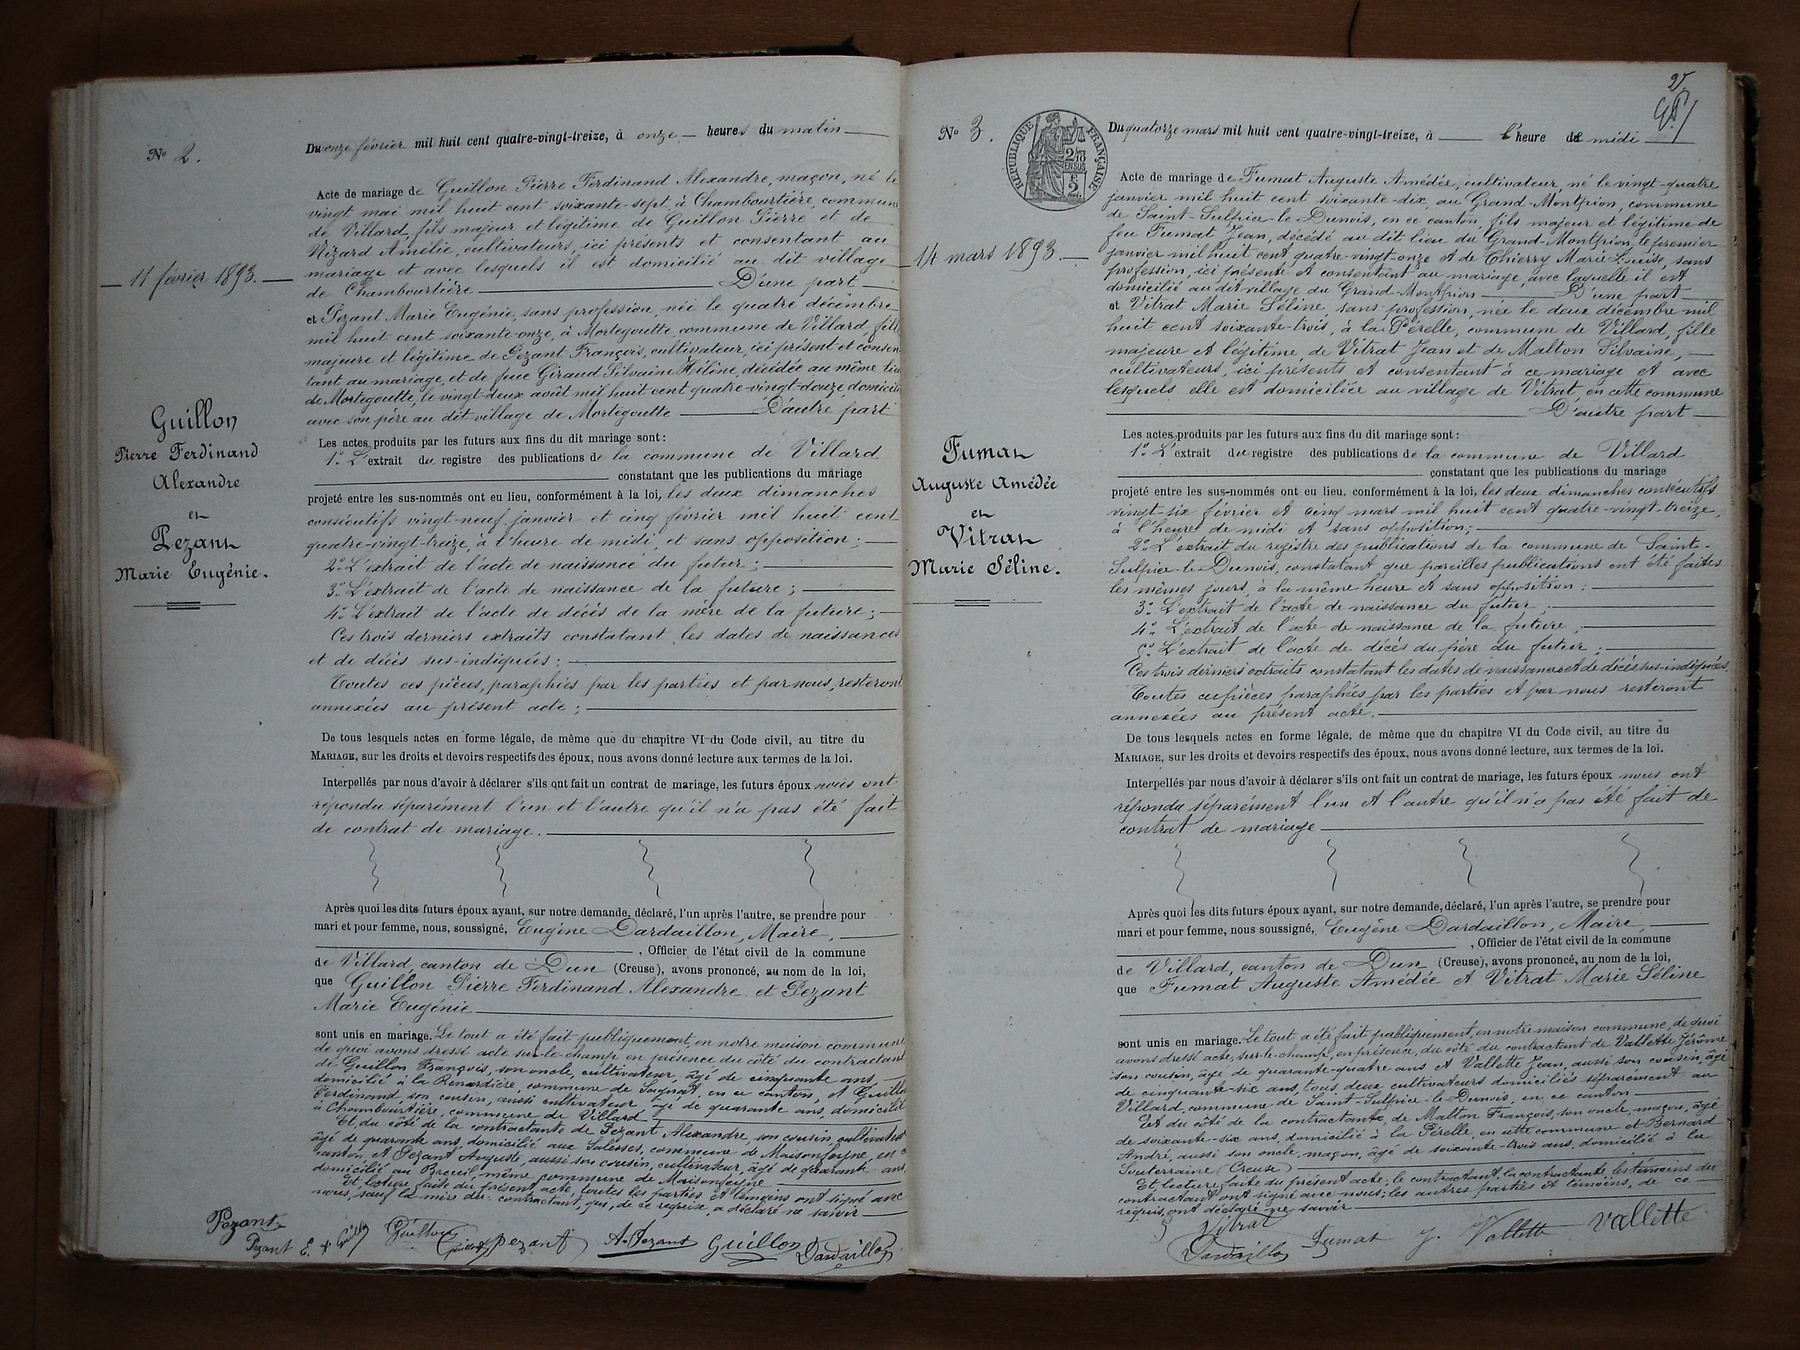 N° 2.
Du onze février mil huit cent quatre-vingt-treize, à onze heures du matin
Acte de mariage de Guillon Pierre Ferdinand Alexandre, maçon, né le
vingt mai mil huit cent soixante-sept, à Chambourtière, commune
de Villard, fils majeur et légitime de Guillon Pierre et de
Nizard Amélie, cultivateurs, ici présents et consentant au
mariage et avec lesquels il est domicilié au dit village
de Chambourtière D'une part
et Pezant Marie Eugénie, sans profession, née le quatre décembre
mil huit cent soixante-onze, à Mortegoutte commune de Villard, fille
majeure et légitime de Pezant François, cultivateur, ici présent et consen
tant au mariage, et de feue Giraud Silvaine Hélène, décédée au même lieu
de Mortegoutte, le vingt-deux août mil huit cent quatre-vingt-douze, domiciliée
avec son père au dit village de Mortegoutte D'autre part
11 février 1893.
Guillon
Pierre Ferdinand
Alexandre
et
Pezant
Marie Eugénie.
Les actes produits par les futurs aux fins du dit mariage sont :
1° L'extrait du registre des publications de la commune de Villard
constatant que les publications du mariage
projeté entre les sus-nommés ont eu lieu, conformément à la loi, les deux dimanches
consécutifs vingt-neuf janvier et cinq février mil huit cent
quatre-vingt-treize, à l'heure de midi, et sans opposition ;
2° L'extrait de l'acte de naissance du futur ;
3° L'extrait de l'acte de naissance de la future ;
4° L'extrait de l'acte de décès de la mère de la future ;
Ces trois derniers extraits constatant les dates de naissances
et de décès sus-indiquées ;
Toutes ces pièces, paraphées par les parties et par nous, resteront
annexées au présent acte ;
De tous lesquels actes en forme légale, de même que du chapitre VI du Code civil, au titre du
MARIAGE, sur les droits et devoirs respectifs des époux, nous avons donné lecture aux termes de la loi.
Interpellés par nous d'avoir à déclarer s'ils ont fait un contrat de mariage, les futurs époux nous ont
répondu séparément l'un et l'autre qu'il n'a pas été fait
de contrat de mariage.
Après quoi les dits futurs époux ayant, sur notre demande, déclaré, l'un après l'autre, se prendre pour
mari et pour femme, nous, soussigné, Eugène Dardaillon, Maire,
, Officier de l'état civil de la commune
de Villard, canton de Dun (Creuse), avons prononcé, au nom de la loi,
que Guillon Pierre Ferdinand Alexandre et Pezant
Marie Eugénie
sont unis en mariage. Le tout a été fait publiquement, en notre maison commune
de quoi avons dressé acte sur-le-champ en présence du côté du contractant
de Guillon François, son oncle, cultivateur, âgé de cinquante ans,
domicilié à la Renardière, commune de Sagnat, en ce canton, et Guillon
Ferdinand, son cousin, aussi cultivateur, âgé de quarante ans, domicilié
à Chambourtière, commune de Villard
Et, du côté de la contractante de Pezant Alexandre, son cousin, cultivateur
âgé de quarante ans, domicilié aux Salesses, commune de Maisonfeyne, en ce
canton, et Pezant Auguste, aussi son cousin, cultivateur, âgé de quarante ans,
domicilié au Breuil, même commune de Maisonfeyne.
Et, lecture faite du présent acte, toutes les parties et témoins ont signé avec
nous, sauf la mère du contractant, qui, de ce requise, a déclaré ne savoir
Pezant
Pezant E.
Guillon
Pezant
A. Pezant
Guillon
Dardaillon
N° 3.
RÉPUBLIQUE FRANÇAISE
Du quatorze mars mil huit cent quatre-vingt-treize, à l'heure de midi
Acte de mariage de Fumat Auguste Amédée, cultivateur, né le vingt-quatre
janvier mil huit cent soixante-dix, au Grand-Montpion, commune
de Saint-Sulpice-le-Dunois, en ce canton, fils majeur et légitime de
feu Fumat Jean, décédé au dit lieu du Grand-Montpion, le premier
janvier mil huit cent quatre-vingt-onze et de Thierry Marie Louise, sans
profession, ici présente et consentant au mariage, avec laquelle il est
domicilié au dit village du Grand-Montpion D'une part
et Vitrat Marie Séline, sans profession, née le deux décembre mil
huit cent soixante-trois, à la Pérelle, commune de Villard, fille
majeure et légitime, de Vitrat Jean et de Malton Silvaine,
cultivateurs, ici présents et consentant à ce mariage et avec
lesquels elle est domiciliée au village de Vitrat, en cette commune
D'autre part
14 mars 1893.
Fumat
Auguste Amédée
et
Vitrat
Marie Séline.
Les actes produits par les futurs aux fins du dit mariage sont :
1° L'extrait du registre des publications de la commune de Villard
constatant que les publications du mariage
projeté entre les sus-nommés ont eu lieu, conformément à la loi, les deux dimanches consécutifs
vingt-six février et cinq mars mil huit cent quatre-vingt-treize,
à l'heure de midi et sans opposition ;
2° L'extrait du registre des publications de la commune de Saint-
Sulpice-le-Dunois, constatant que pareilles publications ont été faites
les mêmes jours, à la même heure et sans opposition ;
3° L'extrait de l'acte de naissance du futur ;
4° L'extrait de l'acte de naissance de la future ;
5° L'extrait de l'acte de décès du père du futur ;
Ces trois derniers extraits constatant les dates de naissances et de décès sus-indiquées.
Toutes ces pièces paraphées par les parties et par nous resteront
annexées au présent acte.
De tous lesquels actes en forme légale, de même que du chapitre VI du Code civil, au titre du
MARIAGE, sur les droits et devoirs respectifs des époux, nous avons donné lecture, aux termes de la loi.
Interpellés par nous d'avoir à déclarer s'ils ont fait un contrat de mariage, les futurs époux nous ont
répondu séparément l'un et l'autre qu'il n'a pas été fait de
contrat de mariage
Après quoi les dits futurs époux ayant, sur notre demande, déclaré, l'un après l'autre, se prendre pour
mari et pour femme, nous, soussigné, Eugène Dardaillon, Maire,
, Officier de l'état civil de la commune
de Villard, canton de Dun (Creuse), avons prononcé, au nom de la loi,
que Fumat Auguste Amédée et Vitrat Marie Séline
sont unis en mariage. Le tout a été fait publiquement, en notre maison commune, de quoi
avons dressé acte, sur-le-champ, en présence, du côté du contractant de Vallette Jérôme
son cousin, âgé de quarante-quatre ans et Vallette Jean, aussi son cousin, âgé
de cinquante-six ans, tous deux cultivateurs domiciliés séparément au
Villard, commune de Saint-Sulpice-le-Dunois, en ce canton
Et du côté de la contractante, de Malton François, son oncle, maçon, âgé
de soixante-six ans, domicilié à la Pérelle, en cette commune et Bernard
André, aussi son oncle, maçon, âgé de soixante-trois ans, domicilié à la
Souterraine (Creuse)
Et, lecture faite du présent acte, le contractant, la contractante, les témoins du
contractant ont signé avec nous; les autres parties et témoins, de ce
requis, ont déclaré ne savoir
Vitrat
Dardaillon
Fumat
J. Vallette
Vallette